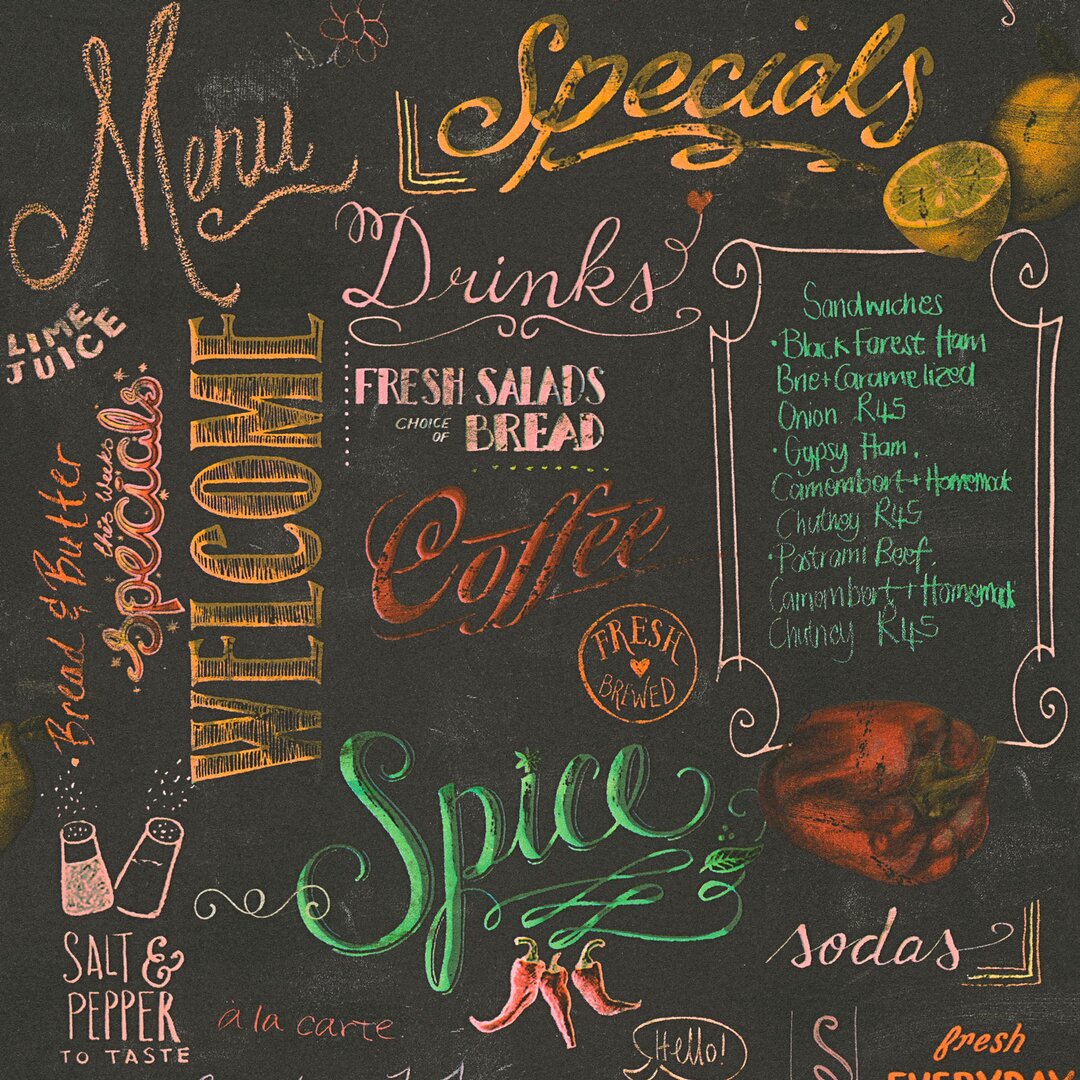 Menu
Specials
Drinks
LIME
JUICE
WELCOME
this Weeks
Specials
Bread & Butter
FRESH SALADS
CHOICE
OF
BREAD
Coffee
FRESH
BREWED
Sandwiches
•Black Forest Ham
Brie+Caramelized
Onion R45
•Gypsy Ham.
Camombort + Homemade
Chutney R45
•Pastrami Beef.
Camombort + Homemade
Chutney R45
Spice
SALT &
PEPPER
TO TASTE
à la carte
sodas
Hello!
fresh
EVERYDAY